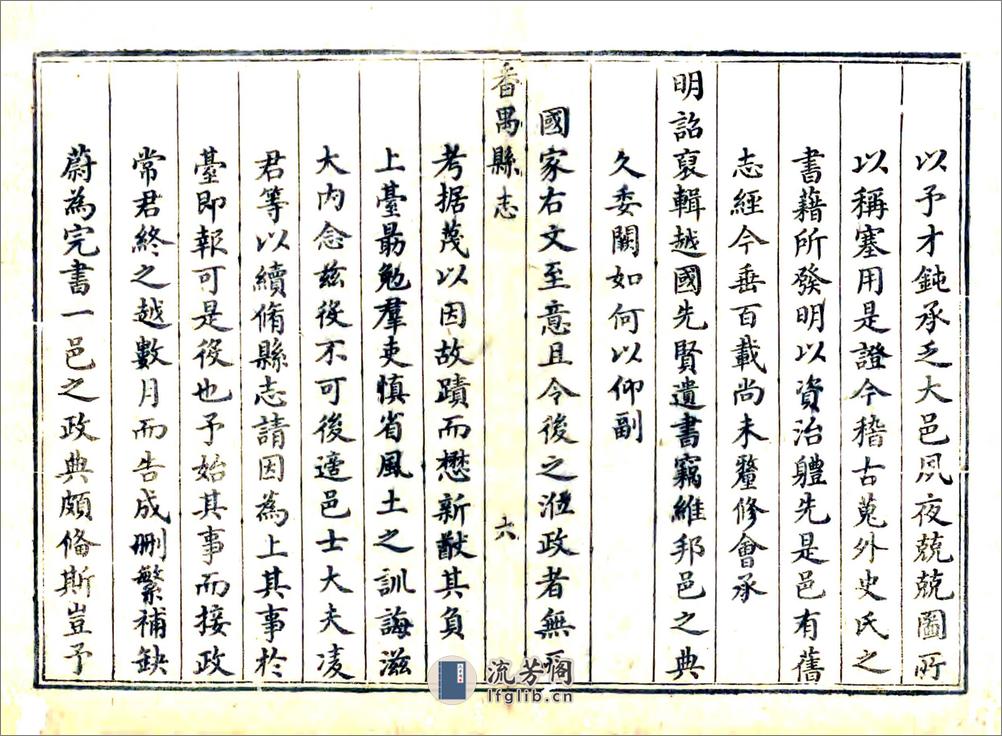 以予才鈍承乏大邑夙夜兢兢圖所
以稱塞用是證今稽古蒐外史氏之
書藉所發明以資治體先是邑有舊
志經今垂百載尚未釐修會承
明詔裒輯越國先賢遺書竊維邦邑之典
久委闕如何以仰副
國家右文至意且令後之涖政者無
番禺縣志
六
考据茂以因故蹟而懋新猷其負
上臺勗勉羣吏慎省風土之訓誨滋
大內念茲役不可後適邑士大夫凌
君等以續脩縣志請因為上其事於
臺即報可是役也予始其事而接政
常君終之越數月而告成刪繁補缺
蔚為完書一邑之政典頗備斯豈予
流芳閣
lfglib.cn